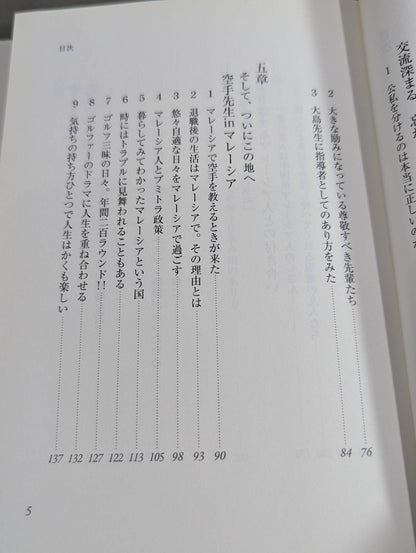 交流深まる
1 公私を分けるのは本当に正しいの
2 大きな励みになっている尊敬すべき先輩たち……76
3 大島先生に指導者としてのあり方をみた……84
五章
そして、ついにこの地へ
空手先生inマレーシア
1 マレーシアで空手を教えるときが来た……90
2 退職後の生活はマレーシアで。その理由とは……93
3 悠々自適な日々をマレーシアで過ごす……98
4 マレーシア人とブミトラ政策……105
5 暮らしてみてわかったマレーシアという国……113
6 時にはトラブルに見舞われることもある……122
7 ゴルフ三昧の日々。年間二百ラウンド!!……127
8 ゴルファーのドラマに人生を重ね合わせる……132
9 気持ちの持ち方ひとつで人生はかくも楽しい……137
目次
5